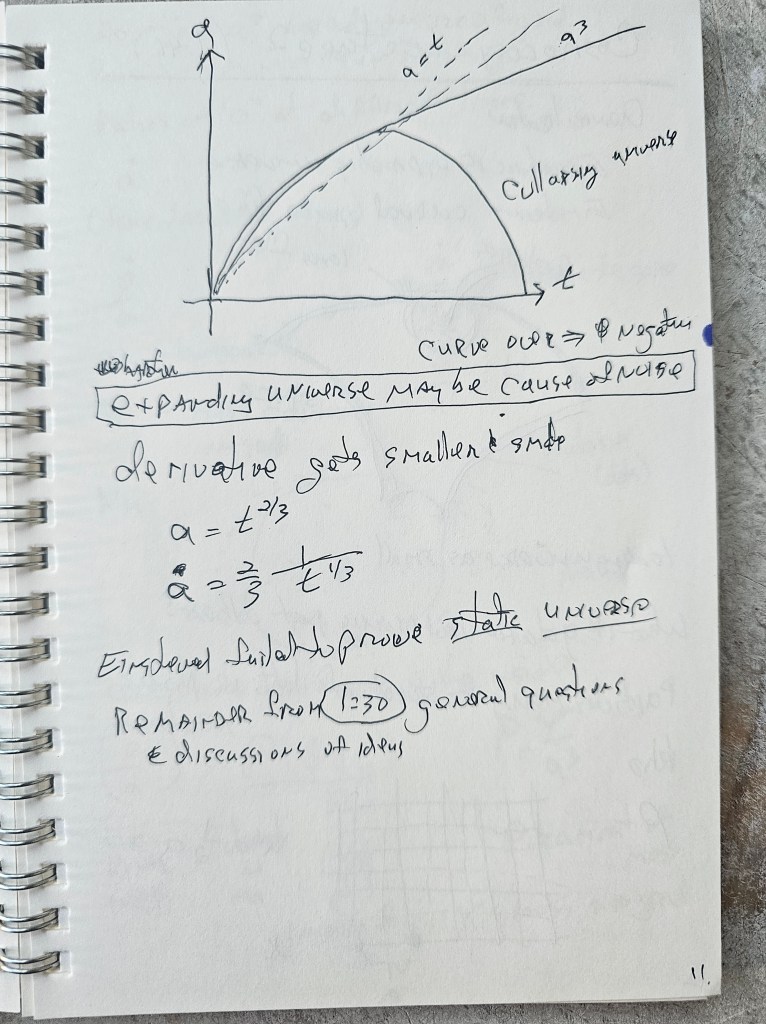 a
a = t
a³
Collapsing universe
t
curve over ⇒ negative
expanding universe may be cause of noise
derivative gets smaller &
a = t^2/3
ȧ = 2/3 1/t^1/3
failed to prove static universe
Remainder from 1:30 general questions
& discussions of ideas
11.